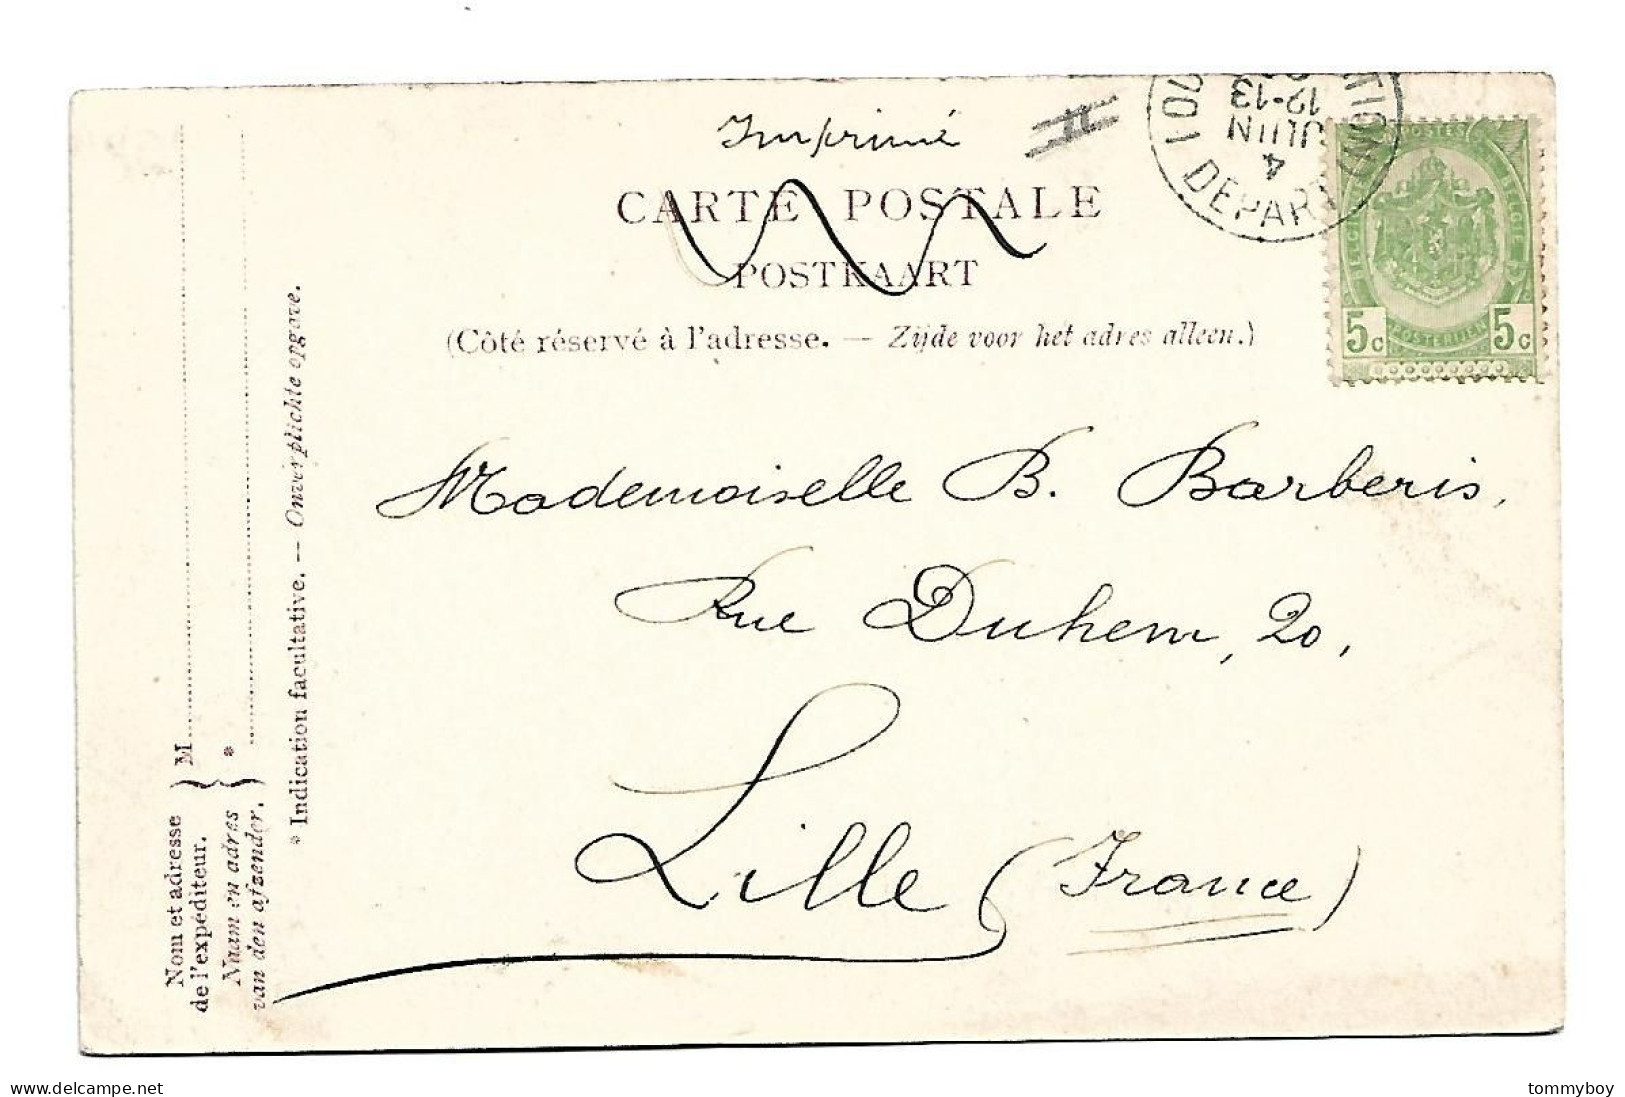 Imprimé
CARTE POSTALE
POSTKAART
(Côté réservé à l'adresse. — Zijde voor het adres alleen.)
Mademoiselle B. Barberis,
Rue Duhem, 20,
Lille (France)
Nom et adresse
de l'expéditeur.
Naam en adres
van den afzender.
M
*
* Indication facultative. — Onverplichte opgave.
DEPART
4
JUIN
12-13
POSTES
BELGIQUE
BELGIE
5c
POSTERIJEN
5c
delcampe.net
tommyboy